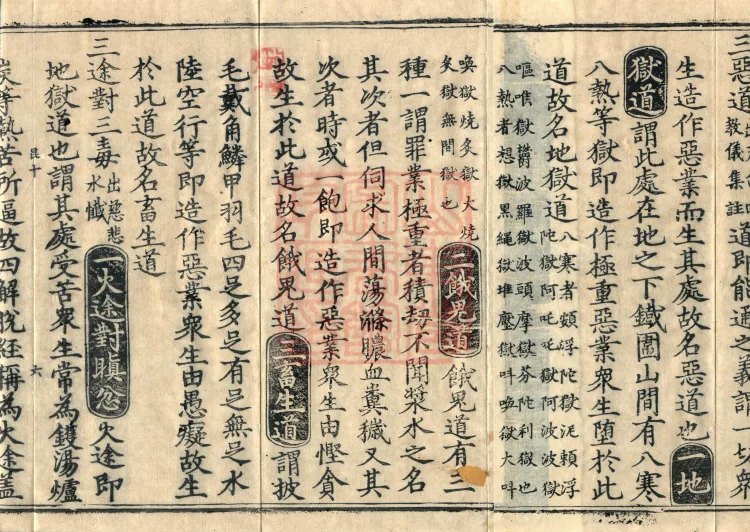 三惡道教儀集註道即能通之義謂一切衆
生造作惡業而生其處故名惡道也一地
獄道謂此處在地之下鐵圍山間有八寒
八熱等獄即造作極重惡業衆生墮於此
道故名地獄道八寒者頞浮陀獄泥頼浮
陀獄阿吒吒獄阿波波獄
嘔喉獄欝波羅獄波頭摩獄芬陀利獄也
八熱者想獄黑繩獄堆壓獄呌喚獄大呌
喚獄燒炙獄大燒
炙獄無間獄也二餓鬼道餓鬼道有三
種一謂罪業極重者積劫不聞漿水之名
其次者但伺求人間蕩滌膿血糞穢又其
次者時或一飽即造作惡業衆生由慳貪
故生於此道故名餓鬼道三畜生道謂披
毛戴角鱗甲羽毛四足多足有足無足水
陸空行等即造作惡業衆生由愚癡故生
於此道故名畜生道
三途對三毒出慈悲水懺一火途對瞋忿火途即
地獄道也謂其處受苦衆生常為鑊湯爐
昆十 六
炭等熱苦所逼故四解脫經稱為火途葢